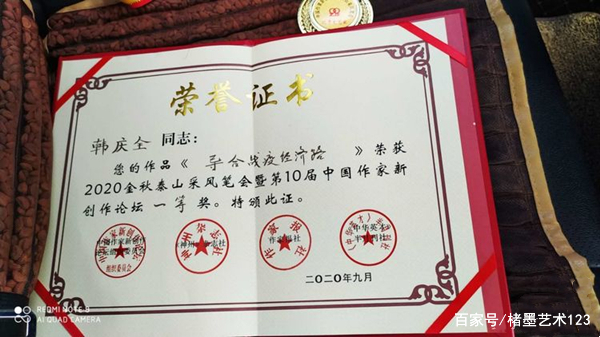 荣誉证书
韩庆全 同志：
您的作品《 导合战疫经济路 》荣获
2020金秋泰山采风笔会暨第10届中国作家新
创作论坛 一等 奖。特颁此证。
组织委员会
作家报社
二〇二〇年九月
REDMI NOTE 8
AI QUAD CAMERA
百家号/楮墨艺术123